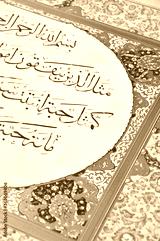 بسم الله الرحمن الر
مثل الذين ينفقون
كمثل حبة انبتت
مائة حبة
Adobe Stock